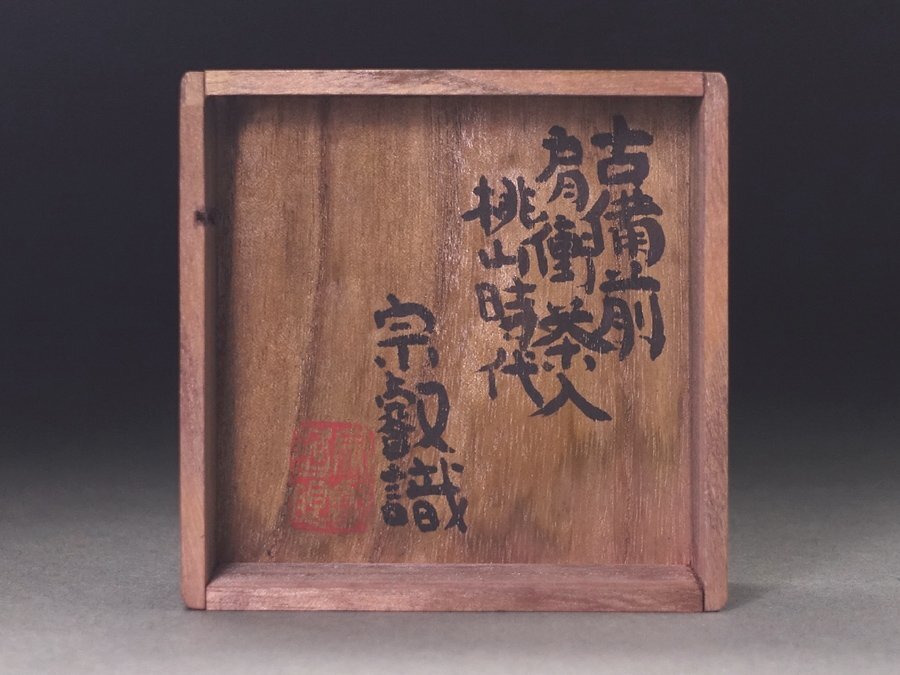 古備前
肩衝茶入
桃山時代
宗叡識